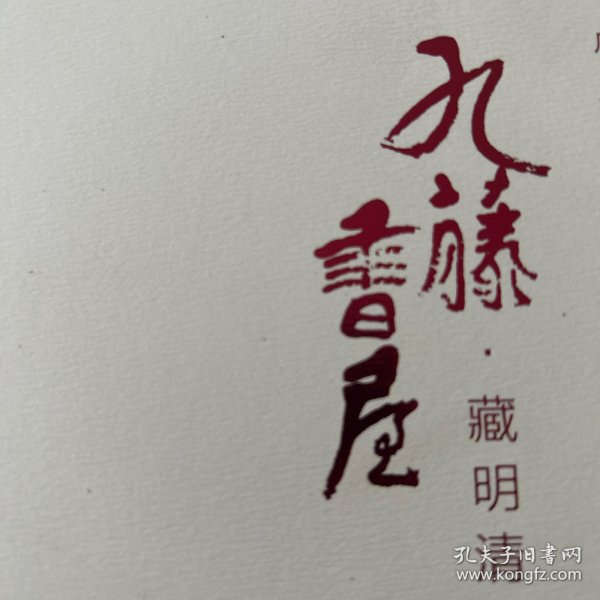 九藤
書屋
·藏明清
孔夫子旧书网
www.kongfz.com